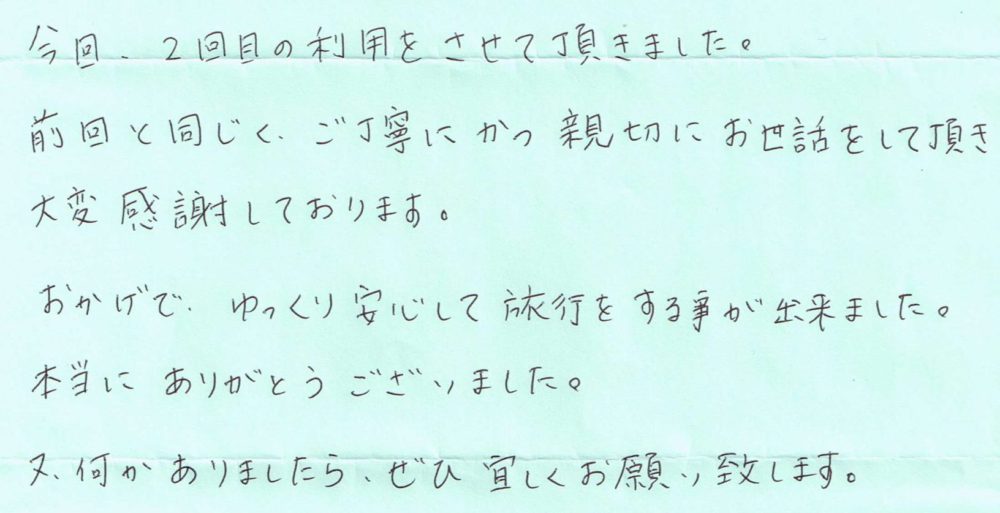 今回、2回目の利用をさせて頂きました。
前回と同じく、ご丁寧にかつ親切にお世話をして頂き
大変感謝しております。
おかげで、ゆっくり安心して旅行をする事が出来ました。
本当にありがとうございました。
又、何かありましたら、ぜひ宜しくお願い致します。